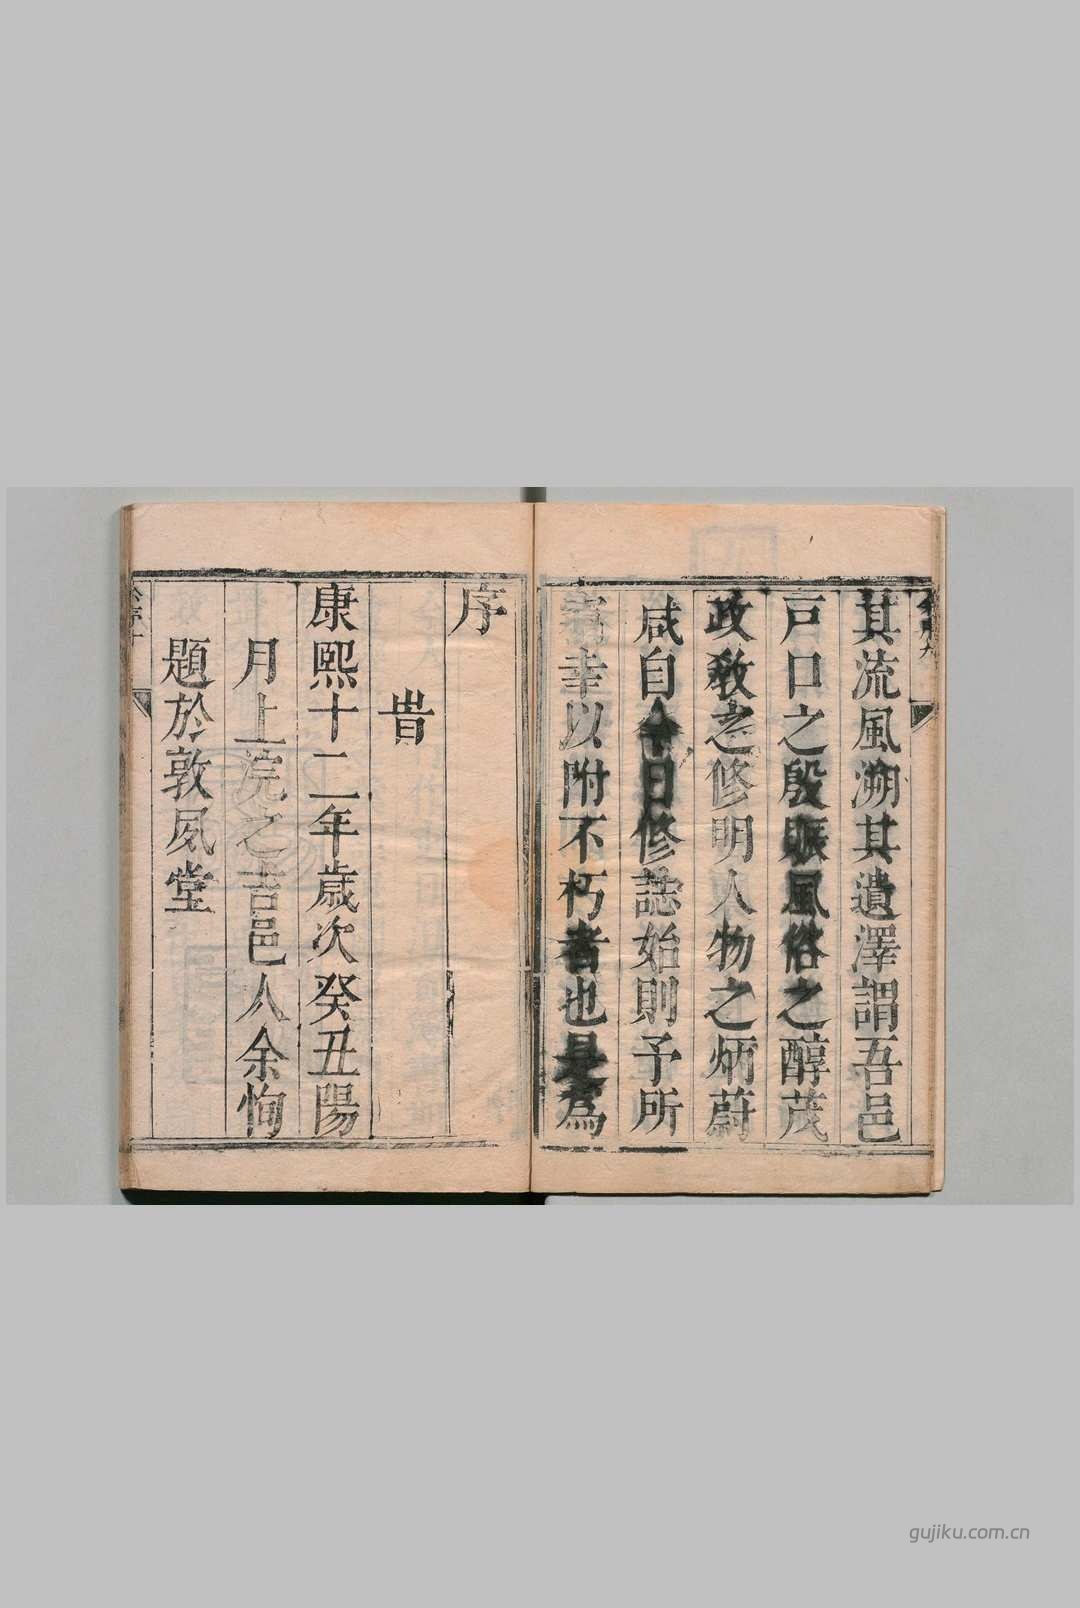 其流風溯其遺澤謂吾邑
戸口之殷賑風俗之醇茂
政教之修明人物之炳蔚
咸自今日修誌始則予所
幸以附不朽者也是為
序
旹
康熙十二年歲次癸丑陽
月上浣之吉邑人余恂
題於敦夙堂
gujiku.com.cn